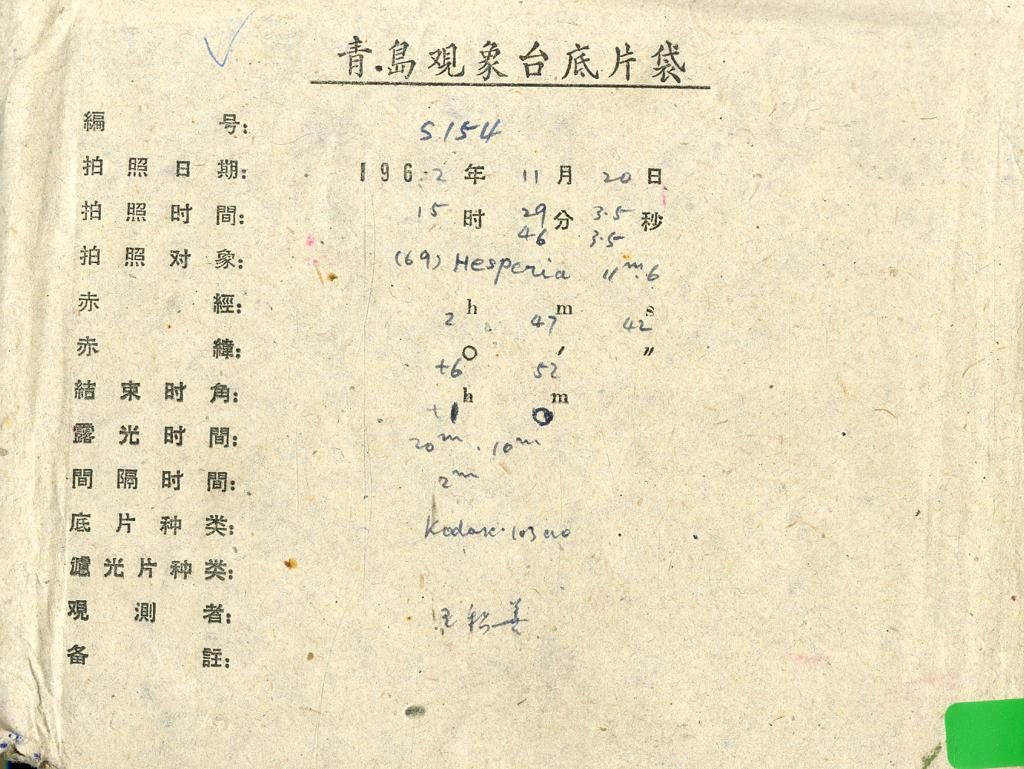 青島观象台底片袋
編号: S154
拍照日期: 1962年11月20日
拍照时間: 15时29分3.5秒
46 3.5
拍照对象: (69) Hesperia 11m.6
赤經: 2h 47m 42s
赤緯: +6° 52′ ″
結束时角: +1h 0m
露光时間: 20m. 10m
間隔时間: 2m
底片种类: Kodak 103aO
濾光片种类:
观測者:
备註: